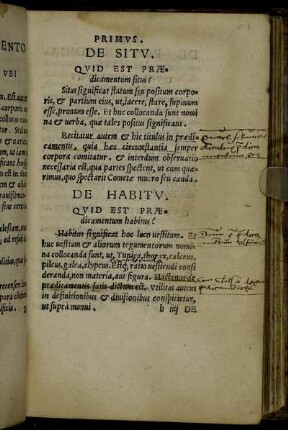 PRIMVS.
DE SITV.
QVID EST PRÆ-
dicamentum situs?
Situs significat statum seu positum corpo
ris, & partium eius, ut, iacere, stare, supinum
esse, pronum esse. Et huc collocanda sunt nomi
na & uerba, quæ tales positus significant.
Recitatur autem & hic titulus in prædi
camentis, quia hæc circumstantia semper
corpora comitatur. & interdum obseruatio
necessaria est, qua partes spectent, ut cum quæ
rimus, quo spectarit Cometæ mucro seu cauda.
DE HABITV.
QVID EST PRÆ-
dicamentum habitus?
Habitus significat hoc loco uestitum. Et
huc uestium & aliorum tegumentorum nomi
na collocanda sunt, ut, Tunica, thorax, calceus,
pileus, galea, clypeus. Estq; ratio uestiendi consi
deranda, non materia, aut figura. Hactenus de
prædicamentis satis dictum est. Vtilitas autem
in definitionibus & diuisionibus conspicietur,
ut supra monui.
b iiij DE
ENTO
VBI